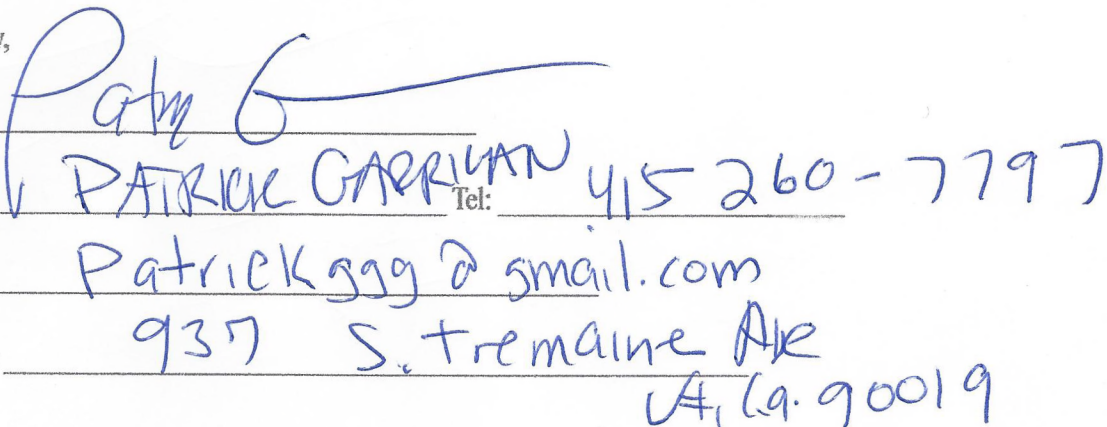 Patrick G
PATRICK GARRIGAN Tel: 415 260-7797
patrickggg@gmail.com
937 S. Tremaine Ave
LA, Ca. 90019